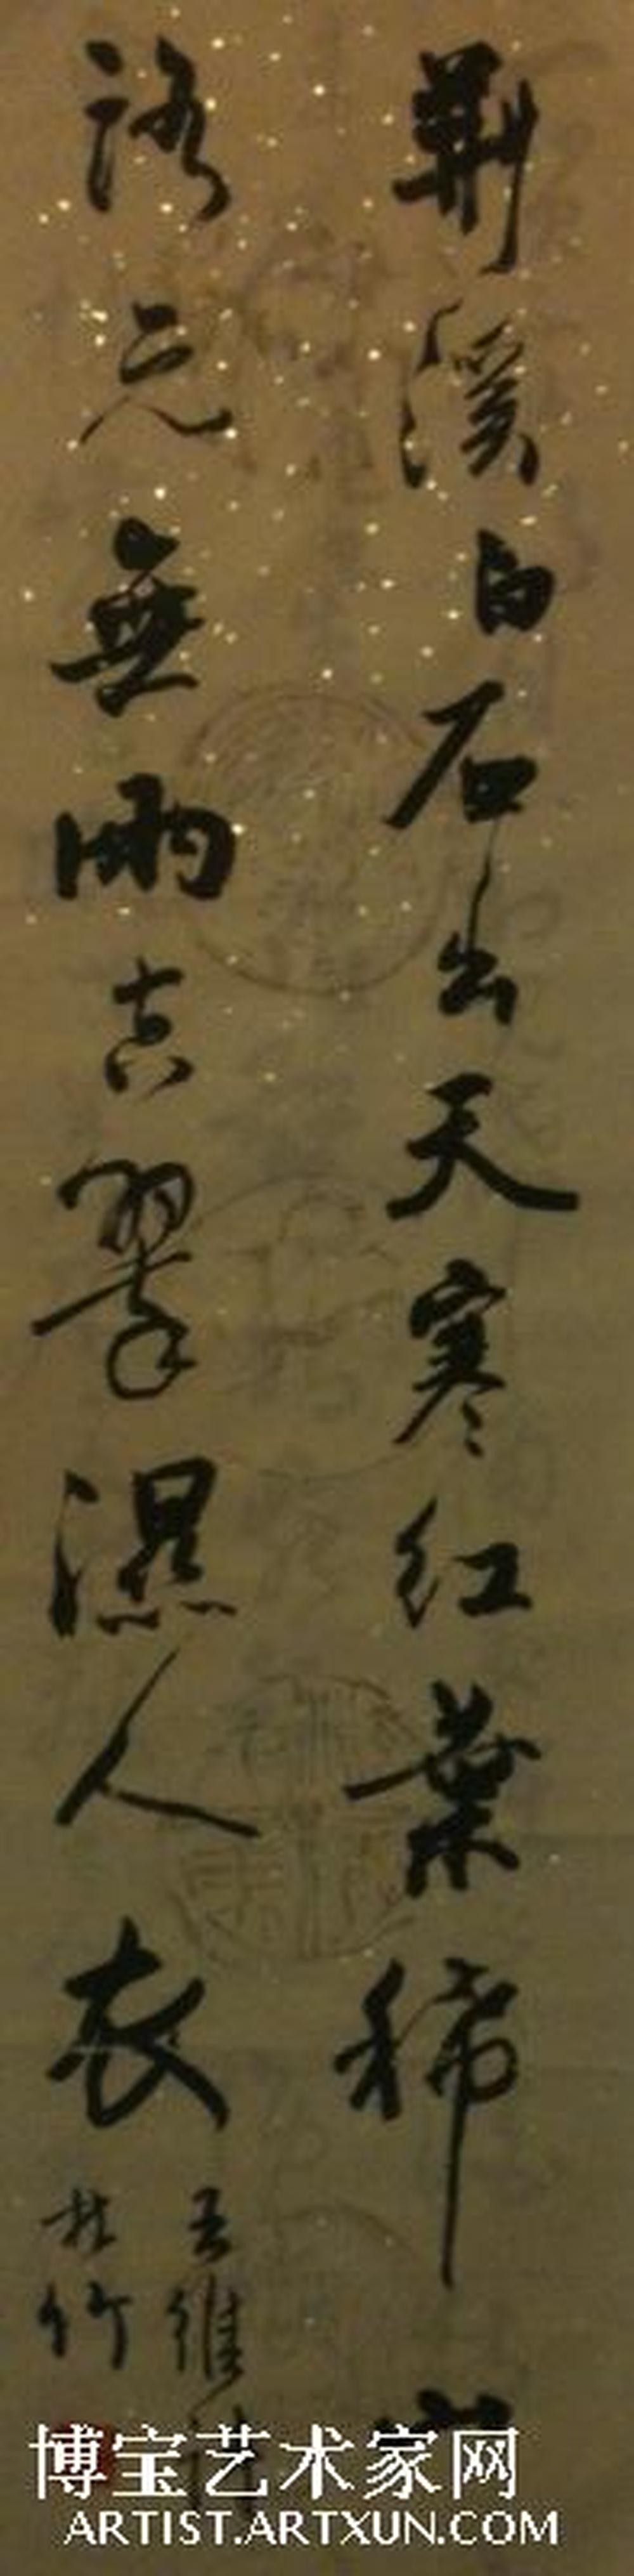 荆溪白石出天寒红葉稀山
路元無雨空翠濕人衣
王維詩
竹
博宝艺术家网
ARTIST.ARTXUN.COM